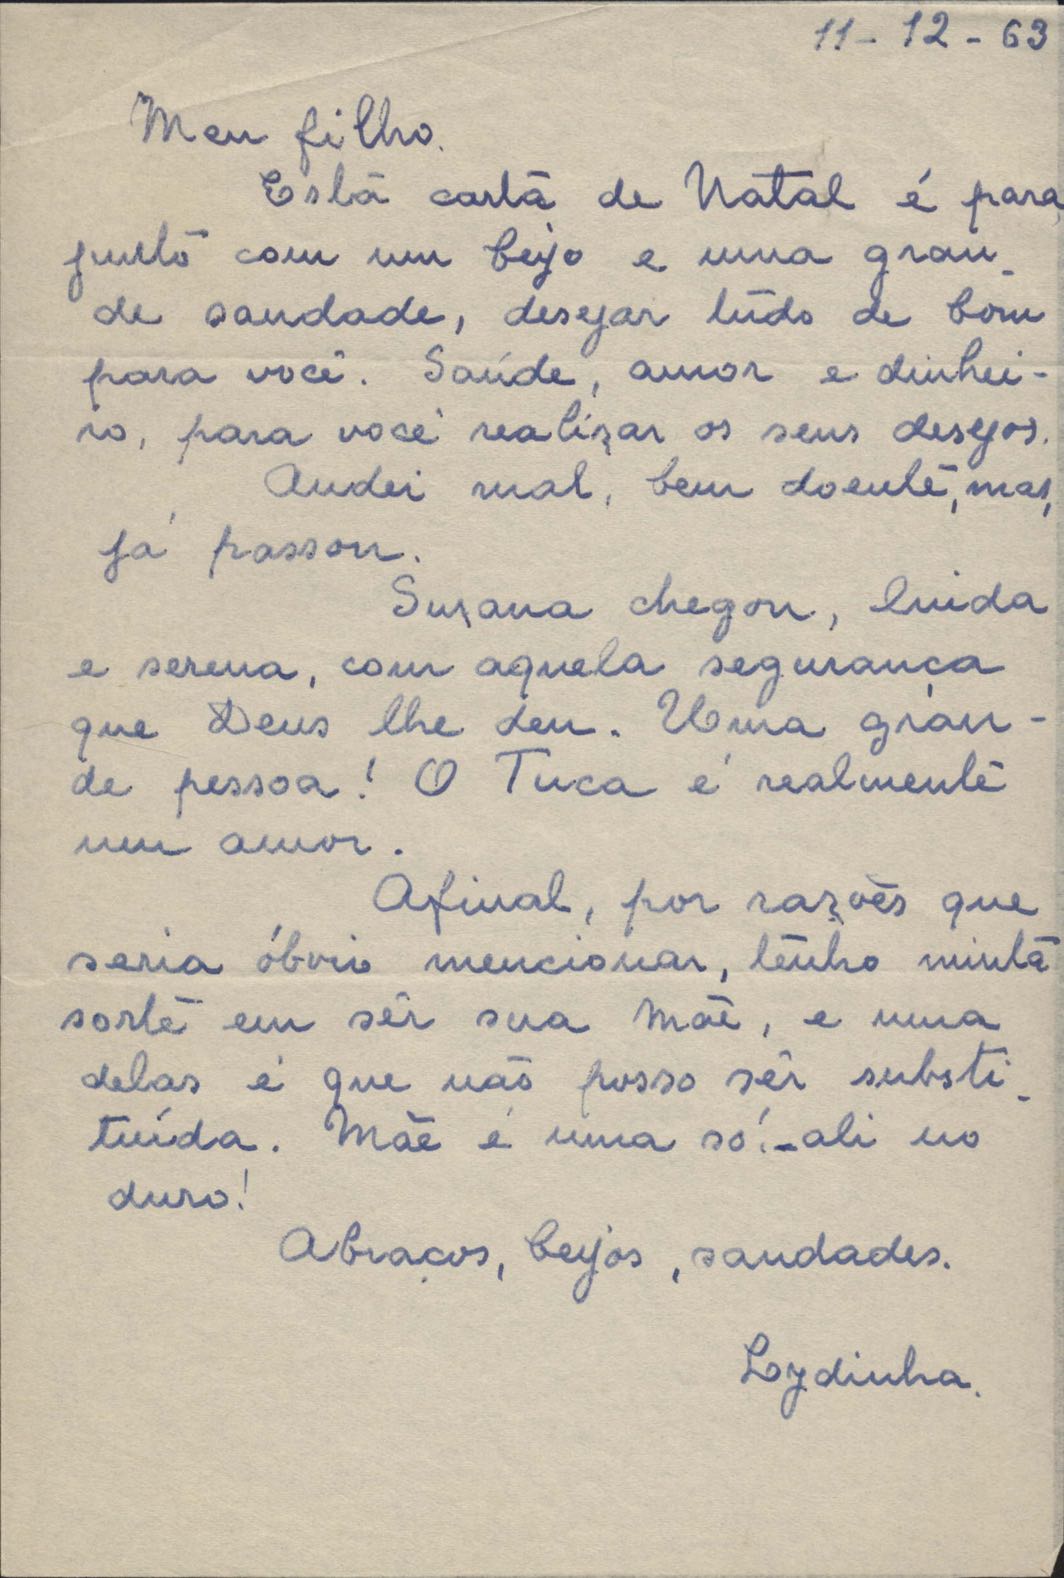 11-12-63
Meu filho.
Esta carta de Natal é para
junto com um beijo e uma gran-
de saudade, desejar tudo de bom
para você. Saúde, amor e dinhei-
ro, para você realizar os seus desejos.
Andei mal, bem doente, mas,
já passou.
Suzana chegou, linda
e serena, com aquela segurança
que Deus lhe deu. Uma gran-
de pessoa! O Tuca é realmente
um amor.
Afinal, por razões que
seria óbvio mencionar, tenho minha
sorte em sêr sua Mãe, e uma
delas é que não posso sêr substi-
tuída. Mãe é uma só! - ali no
duro!
Abraços, beijos, saudades.
Lydinha.